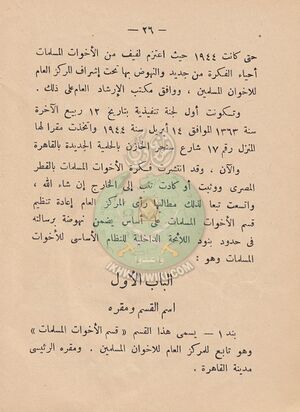 — ٢٦ —
حتى كانت ١٩٤٤ حيث اعتزم لفيف من الأخوات المسلمات
أحياء الفكرة من جديد والنهوض بها تحت إشراف المركز العام
للاخوان المسلمين ، ووافق مكتب الإرشاد العام على ذلك .
وتكونت أول لجنة تنفيذية بتاريخ ١٢ ربيع الآخرة
سنة ١٣٦٣ الموافق ١٤ أبريل سنة ١٩٤٤ واتخذت مقرا لها
المنزل رقم ١٧ شارع سنجر الخازن بالحلمية الجديدة بالقاهرة
والآن ، وقد انتشرت فكرة الأخوات المسلمات بالقطر
المصرى ووثبت أو كادت تثب إلى الخارج إن شاء الله ،
واتسعت تبعا لذلك مطالبها رأى المركز العام إعادة تنظيم
قسم الأخوات المسلمات على أساس يضمن نهوضه برسالته
فى حدود بنود اللائحة الداخلية للنظام الأساسى للأخوات
المسلمات وهو :
الباب الأول
اسم القسم ومقره
بند ١ — يسمى هذا القسم « قسم الأخوات المسلمات »
وهو تابع للمركز العام للاخوان المسلمين . ومقره الرئيسى
مدينة القاهرة .
IKHWANWIKI.COM